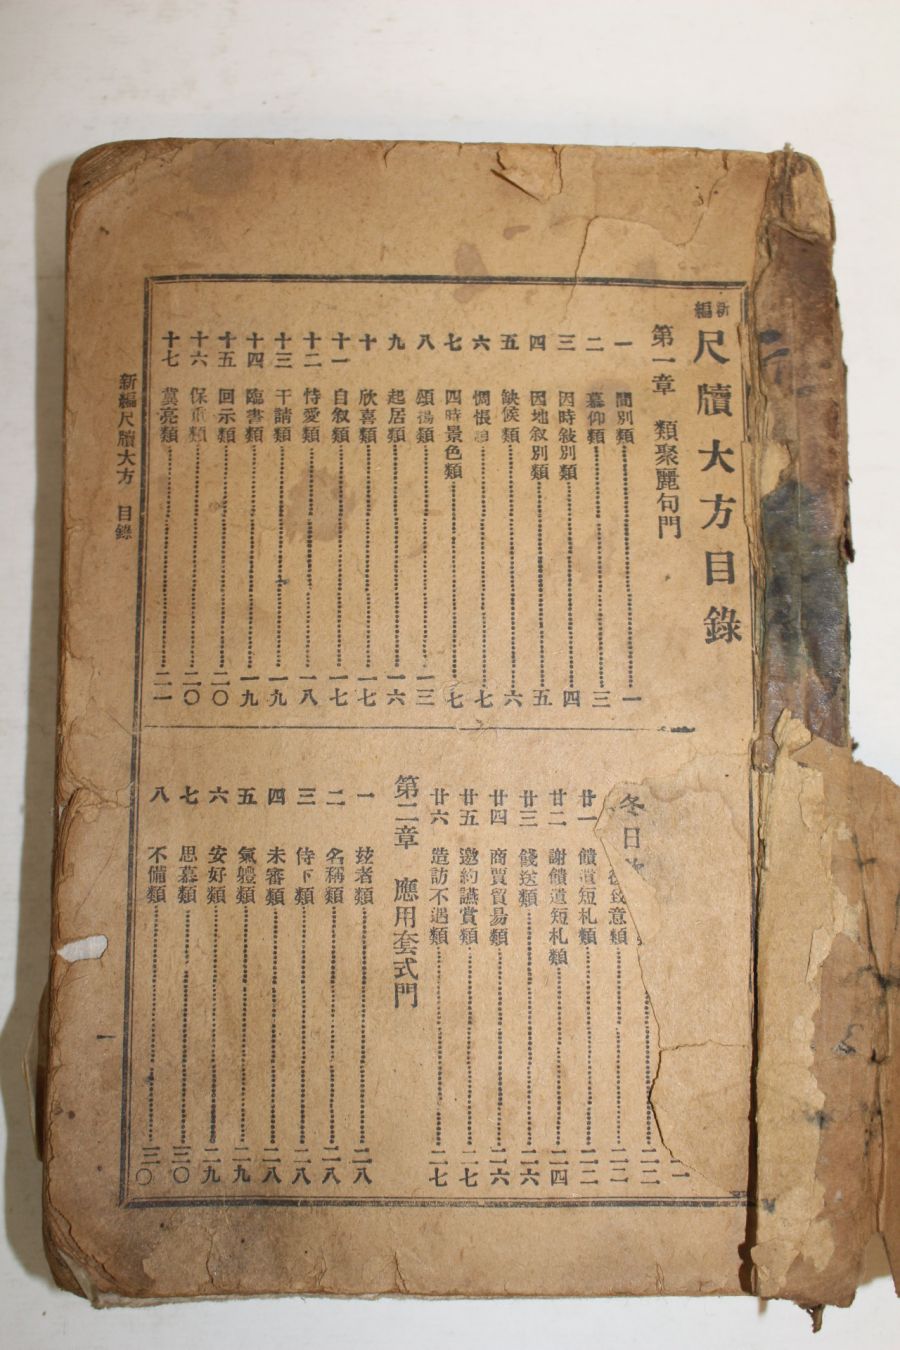 新編尺牘大方目錄
第一章 類聚麗句門
一 間別類 一
二 慕仰類 三
三 因時敍別類 四
四 因地敘別類 五
五 缺候類 六
六 惆悵 七
七 四時景色類 七
八 頌揚類 一三
九 起居類 一六
十 欣喜類 一七
十一 自敘類 一七
十二 恃愛類 一八
十三 干請類 一九
十四 臨書類 一九
十五 回示類 二〇
十六 保重類 二〇
十七 冀亮類 二一
冬日
致意類 二二
廿一 饋遺短札類 二二
廿二 謝饋遺短札類 二四
廿三 餞送類 二六
廿四 商賈貿易類 二六
廿五 邀約讌賞類 二七
廿六 造訪不遇類 二七
第二章 應用套式門
一 玆者類 二八
二 名稱類 二八
三 侍下類 二八
四 未審類 二八
五 氣軆類 二九
六 安好類 二九
七 思慕類 三〇
八 不備類 三〇
新編尺牘大方 目錄 一